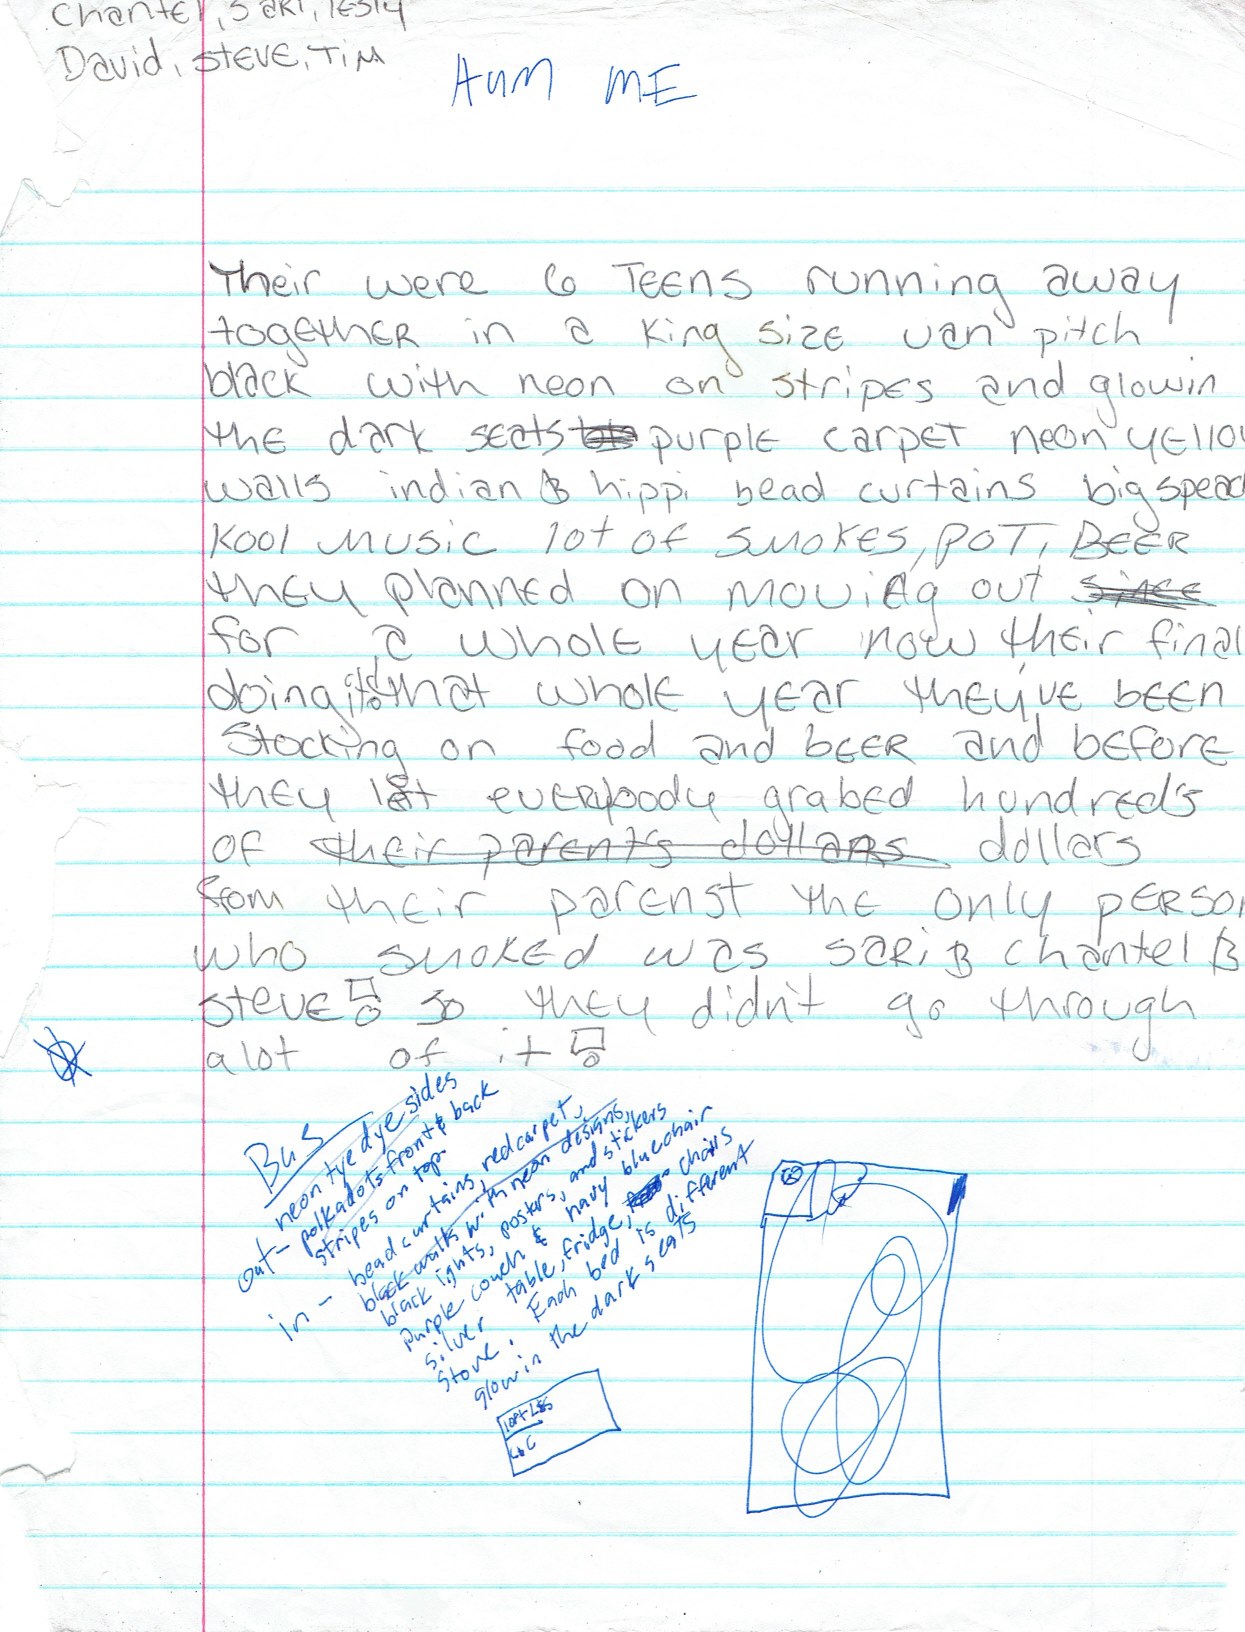 Chantel, Sari, Lesly
David, Steve, Tim
Aum Me
Their were 6 Teens running away
together in a king size van pitch
black with neon on stripes and glowin
the dark seats purple carpet neon yello
walls indian & hippi bead curtains big spead
Kool music lot of smokes, Pot, Beer
they planned on moving out since
for a whole year now their final
doing it that whole year they've been
stocking on food and beer and before
they left everybody grabed hundred's
of their parent's dollars dollars
from their parenst the only person
who smoked was Sari & Chantel &
Steve so they didn't go through
alot of it
Bus
out - neon tye dye sides
polkadots front & back
stripes on top.
in - bead curtains, red carpet,
black walls with neon designs,
black lights, posters, and stickers
purple couch & navy blue chair
silver table, fridge, chairs
stove. Each bed is different
glow in the dark seats